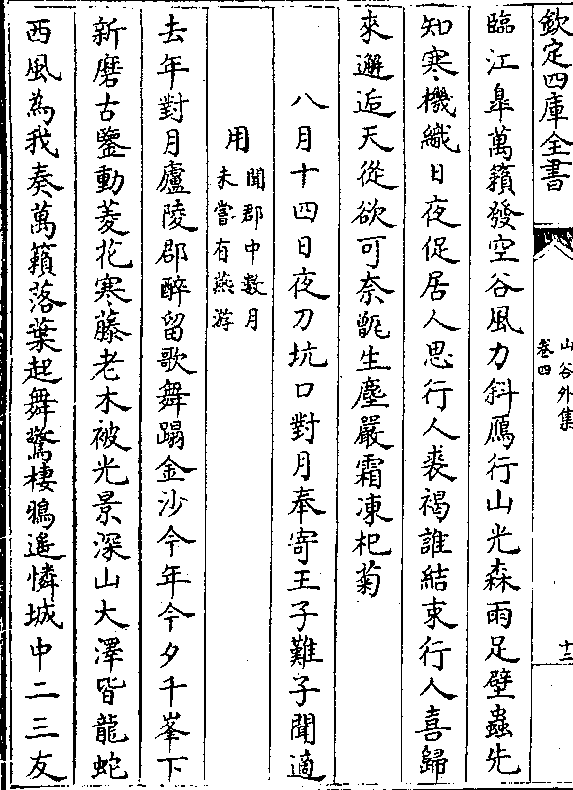 欽定四庫全書
山谷外集
卷四
十二
臨江臯萬籟發空谷風力斜鴈行山光森雨足壁蟲先
知寒機織日夜促居人思行人裘褐誰結束行人喜歸
來邂逅天從欲可奈甑生塵嚴霜凍杞菊
八月十四日夜刀坑口對月奉寄王子難子聞適
用
聞郡中數月
未嘗有燕游
去年對月廬陵郡醉留歌舞蹋金沙今年今夕千峯下
新磨古鑒動菱花寒藤老木被光景深山大澤皆龍蛇
西風為我奏萬籟落葉起舞驚棲鵶遙憐城中二三友